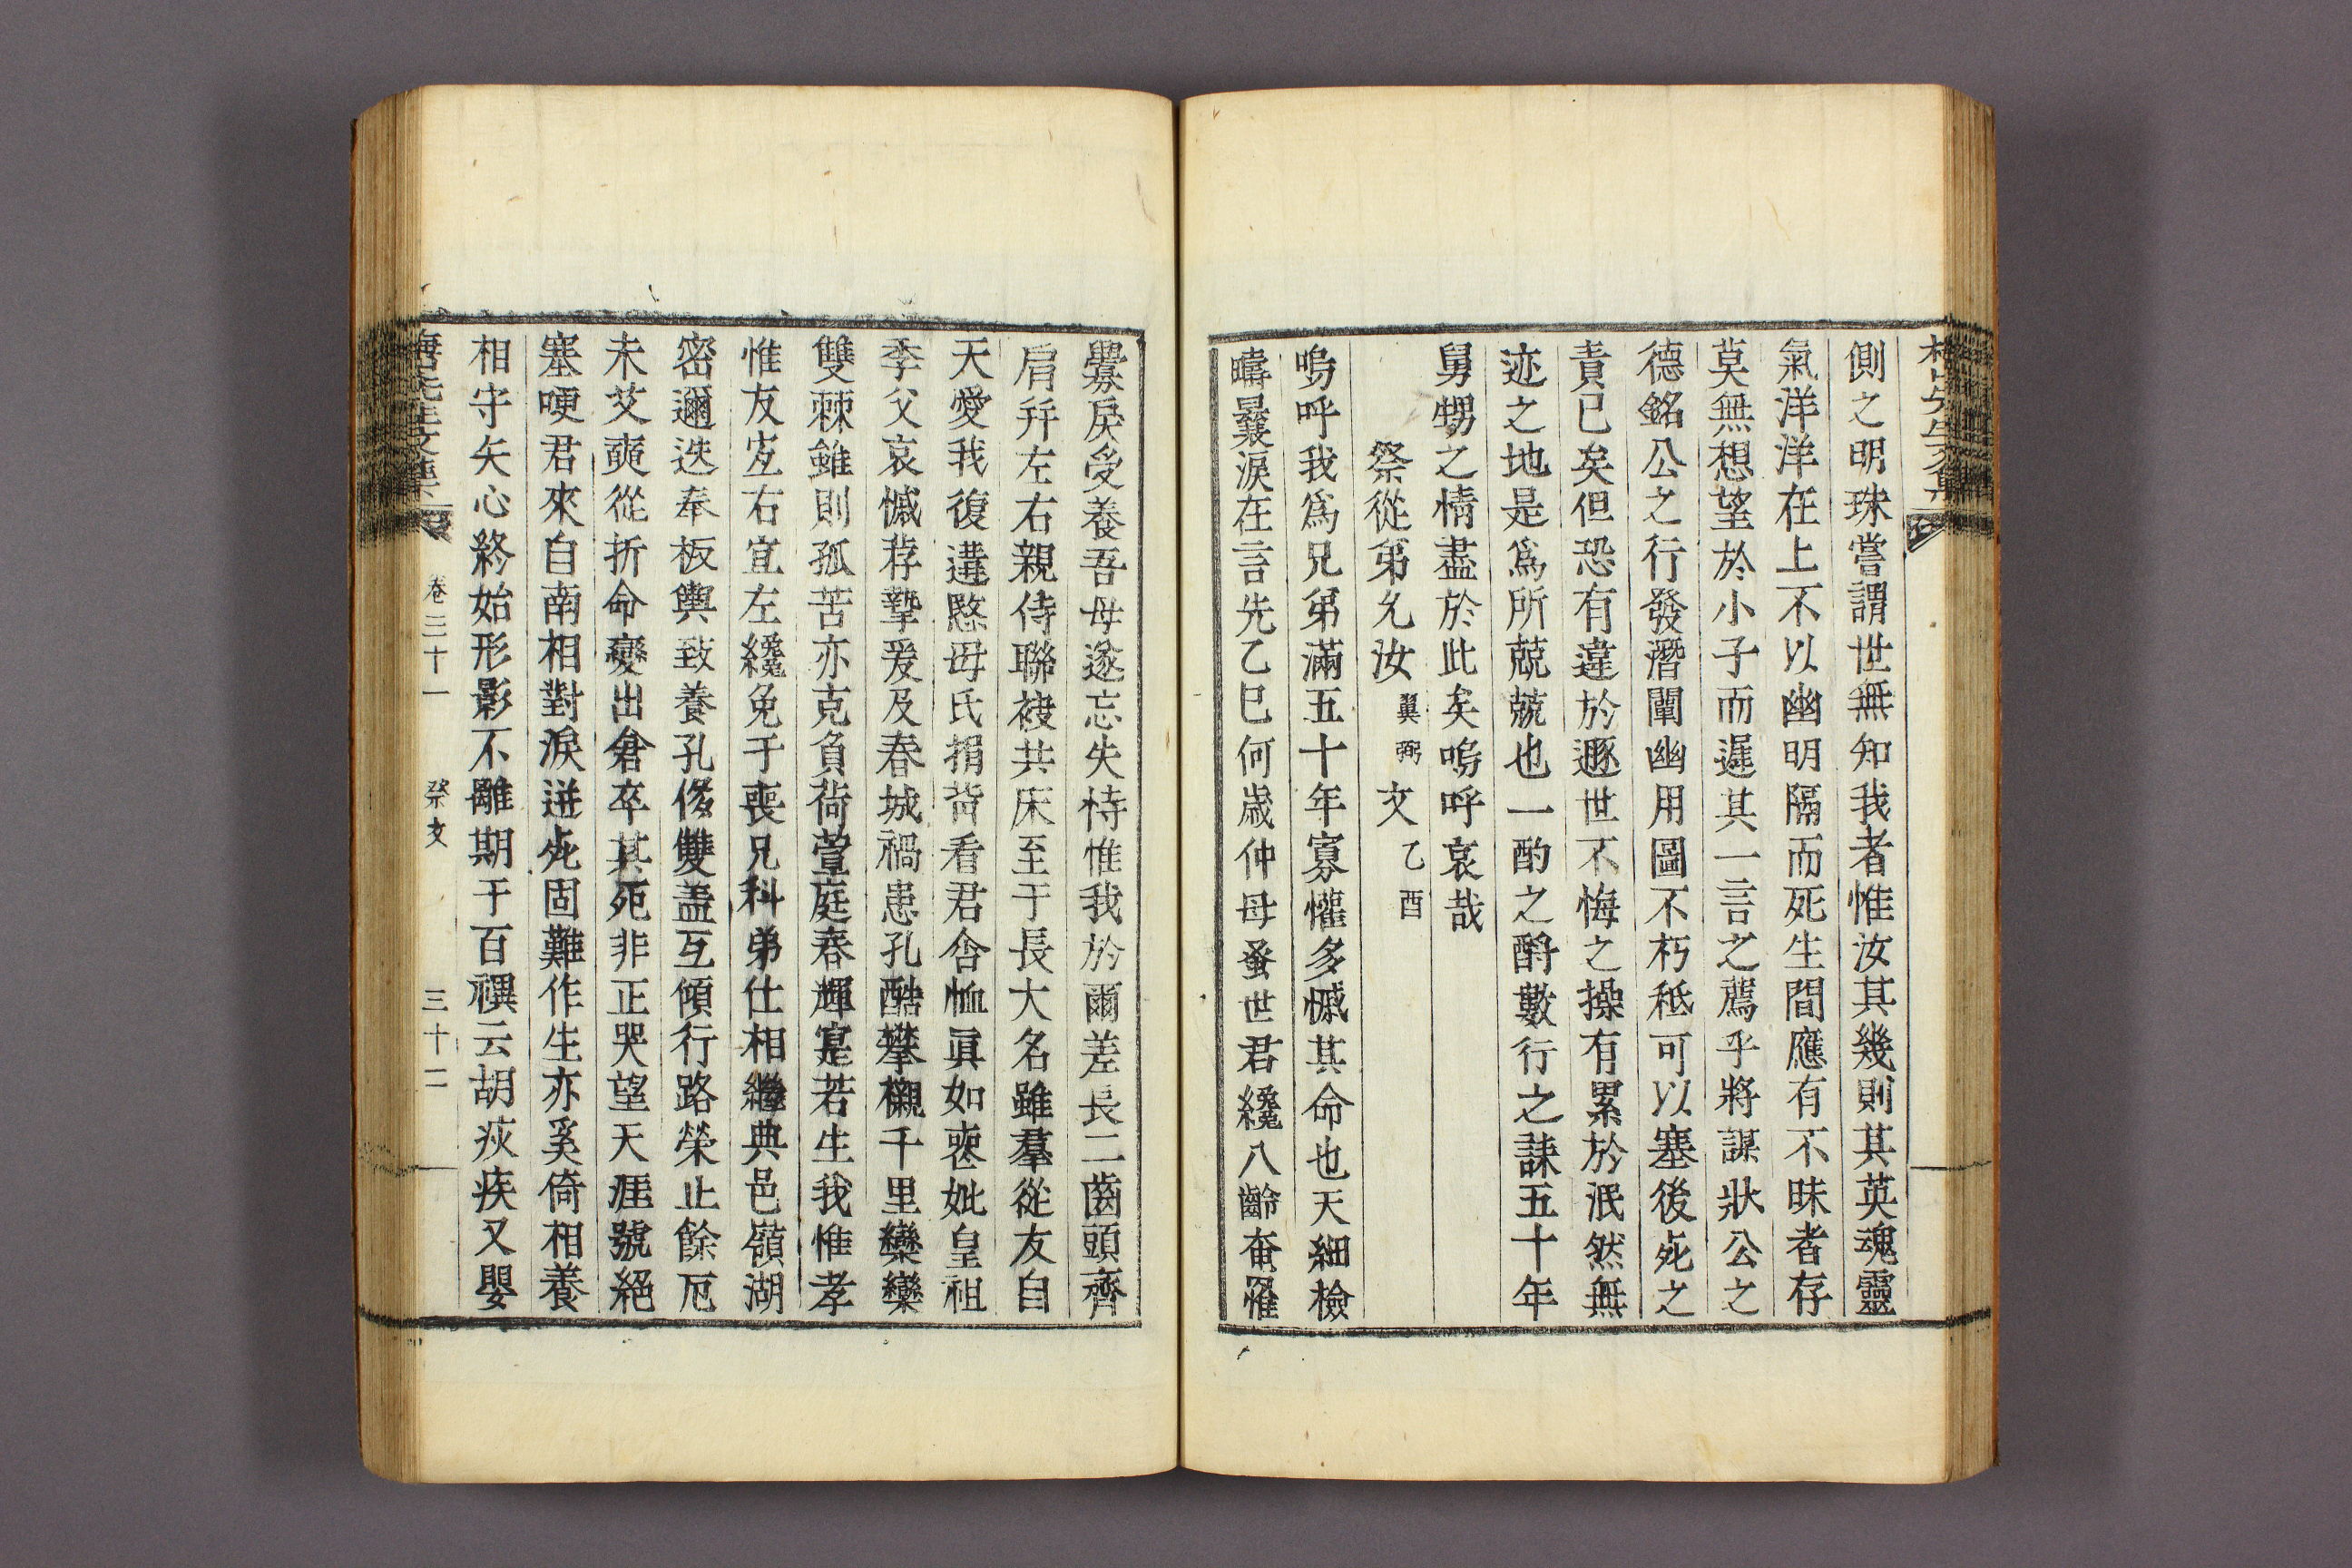 側之明珠嘗謂世無知我者惟汝其幾則其英魂靈
氣洋洋在上不以幽明隔而死生間應有不昧者存
莫無想望於小子而遲其一言之薦乎將謀狀公之
德銘公之行發潛闡幽用圖不朽秪可以塞後死之
責已矣但恐有違於遯世不悔之操有累於泯然無
迹之地是爲所兢兢也一酌之酹數行之誄五十年
舅甥之情盡於此矣嗚呼哀哉
祭從弟允汝翼弼文乙酉
嗚呼我爲兄弟滿五十年寡懽多慽其命也天細檢
疇曩淚在言先乙巳何歲仲母蚤世君纔八齡奄罹
釁戾受養吾母遂忘失恃惟我於爾差長二齒頭齊
肩幷左右親侍聯裾共床至于長大名雖羣從友自
天愛我復遘愍母氏捐背看君含恤眞如喪妣皇祖
季父哀慽荐摯爰及春城禍患孔酷攀櫬千里欒欒
雙棘雖則孤苦亦克負荷萱庭春輝寔若生我惟孝
惟友宐右宜左纔免于喪兄科弟仕相繼典邑嶺湖
密邇迭奉板輿致養孔侈雙盖互傾行路榮止餘厄
未艾奭從折命變出倉卒其死非正哭望天涯號絕
塞哽君來自南相對淚迸死固難作生亦奚倚相養
相守矢心終始形影不離期于百禩云胡疢疾又嬰
卷三十一
祭文
三十二